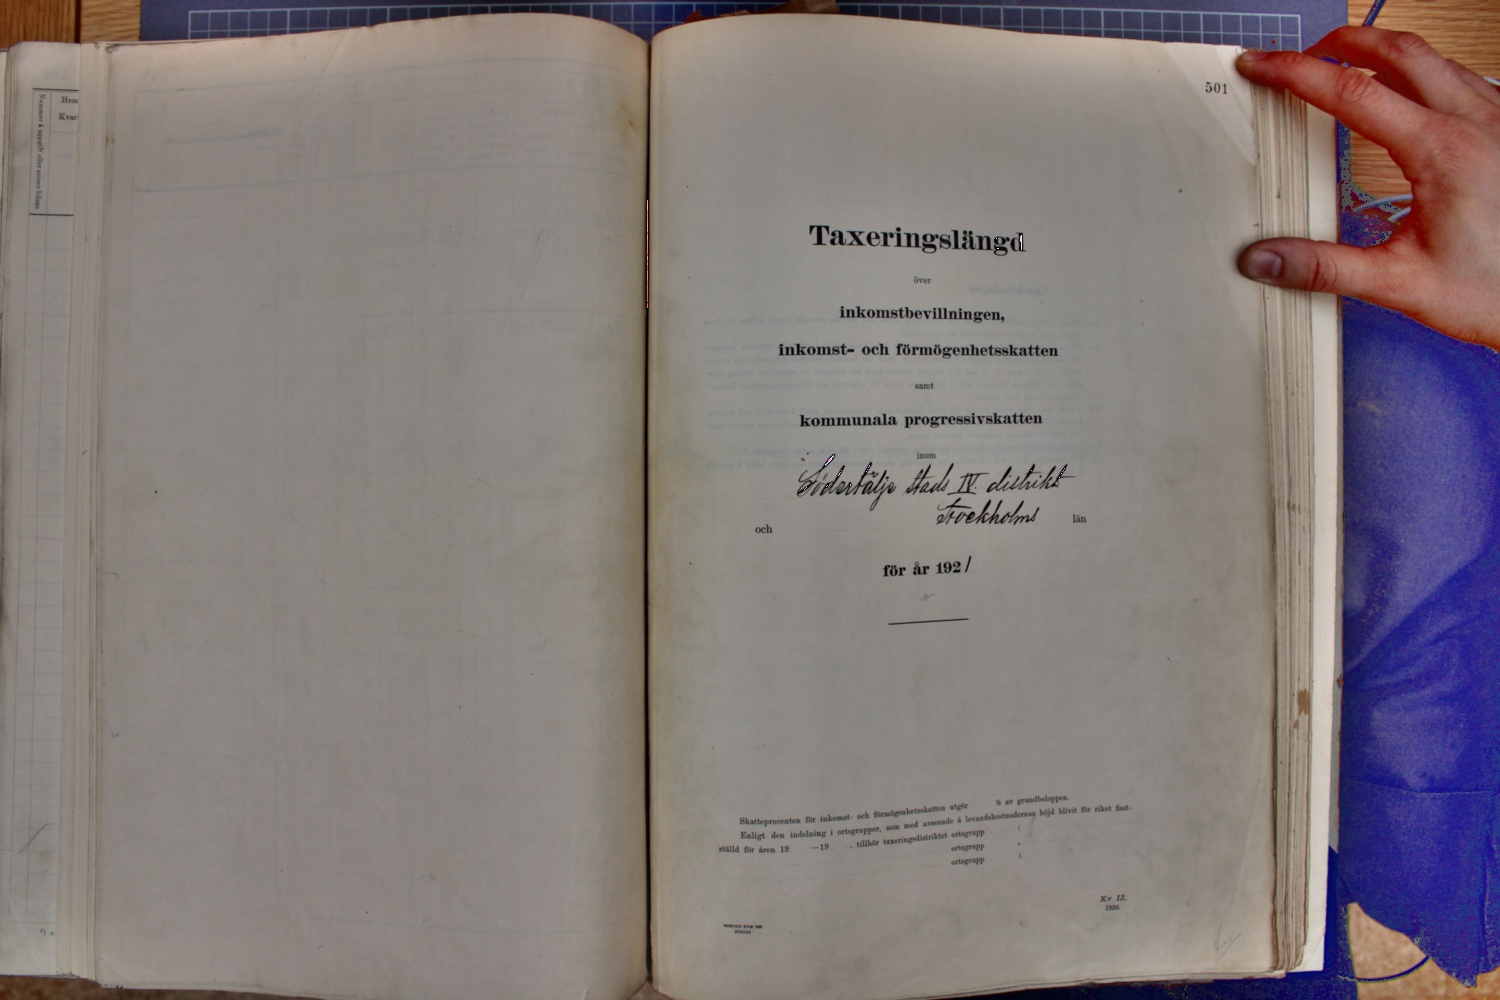 Nummer å uppgift eller annan bilaga
Hem
Kvar
501
Taxeringslängd
över
inkomstbevillningen,
inkomst- och förmögenhetsskatten
samt
kommunala progressivskatten
inom
Södertälje stads IV distrikt
och Stockholms län
för år 1921
Skatteprocenten för inkomst- och förmögenhetsskatten utgör % av grundbeloppen.
Enligt den indelning i ortsgrupper, som med avseende å levnadskostnadernas höjd blivit för riket fast-
ställd för åren 19 —19 , tillhör taxeringsdistriktet ortsgrupp
ortsgrupp
ortsgrupp
N:r 13.
1920.